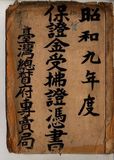 昭和九年度
保證金受拂證憑書
臺灣總督府專賣局